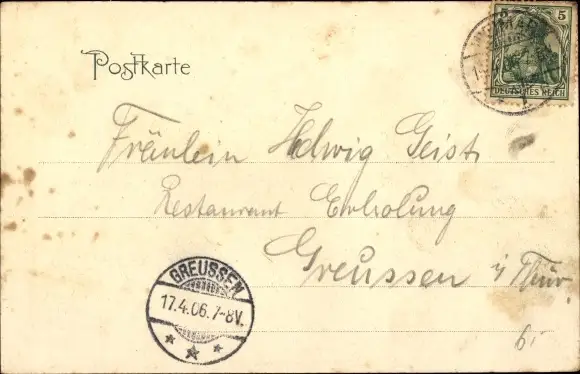 Postkarte
5 5
DEUTSCHES REICH
Fräulein Hedwig Geist
Restaurant Erholung
Greussen i/Thür.
GREUSSEN
17.4.06.7-8V.
6.-